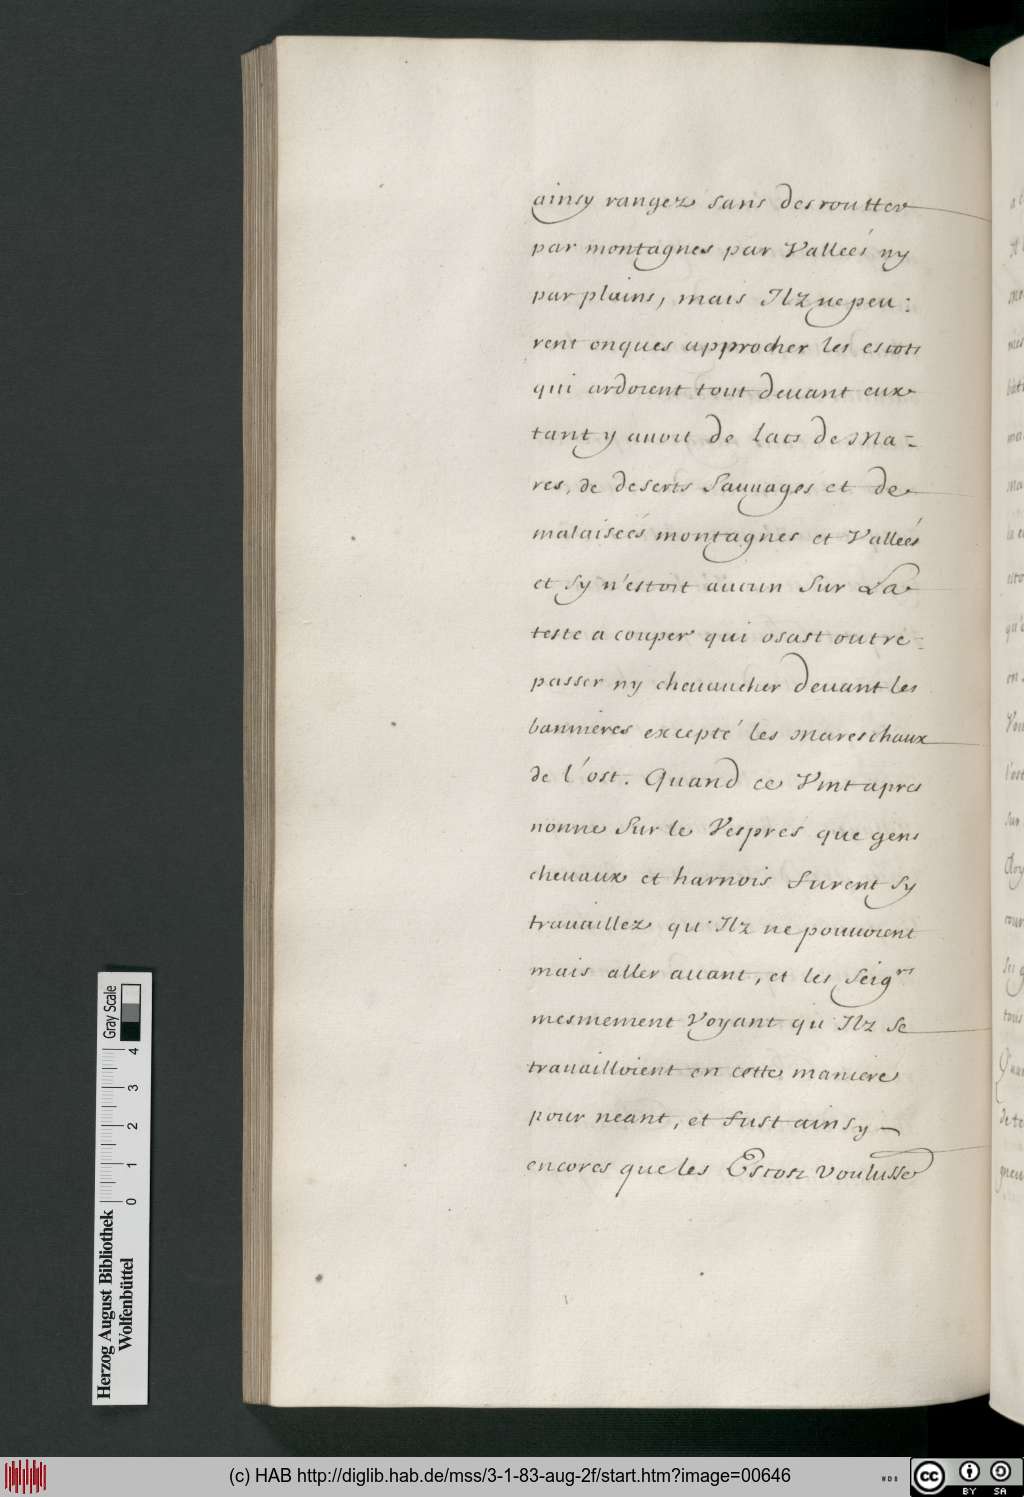 ainsy rangez sans desroutter
par montagnes par Valleés ny
par plains, mais Ilz ne peu:
rent onques approcher les escots
qui ardoient tout deuant eux
tant y auoit de lacs de Ma-
res, de deserts Sauuages et de
malaiseés montagnes et Valleés
et sy n'estoit aucun Sur La
teste a couper qui osast outre-
passer ny cheuaucher deuant les
bannieres excepté les mareschaux
de l'ost. Quand ce Vint apres
nonne Sur le Vespres que gens
cheuaux et harnois furent sy
trauaillez qu'Ilz ne pouuoient
mais aller auant, et les Seigrs
mesmement Voyant qu'Ilz se
trauailloient en cette maniere
pour neant, et fust ainsy
encores que les Escosz voulusse
Gray Scale
4
3
2
1
0
Herzog August Bibliothek
Wolfenbüttel
(c) HAB http://diglib.hab.de/mss/3-1-83-aug-2f/start.htm?image=00646
WDB
cc BY SA